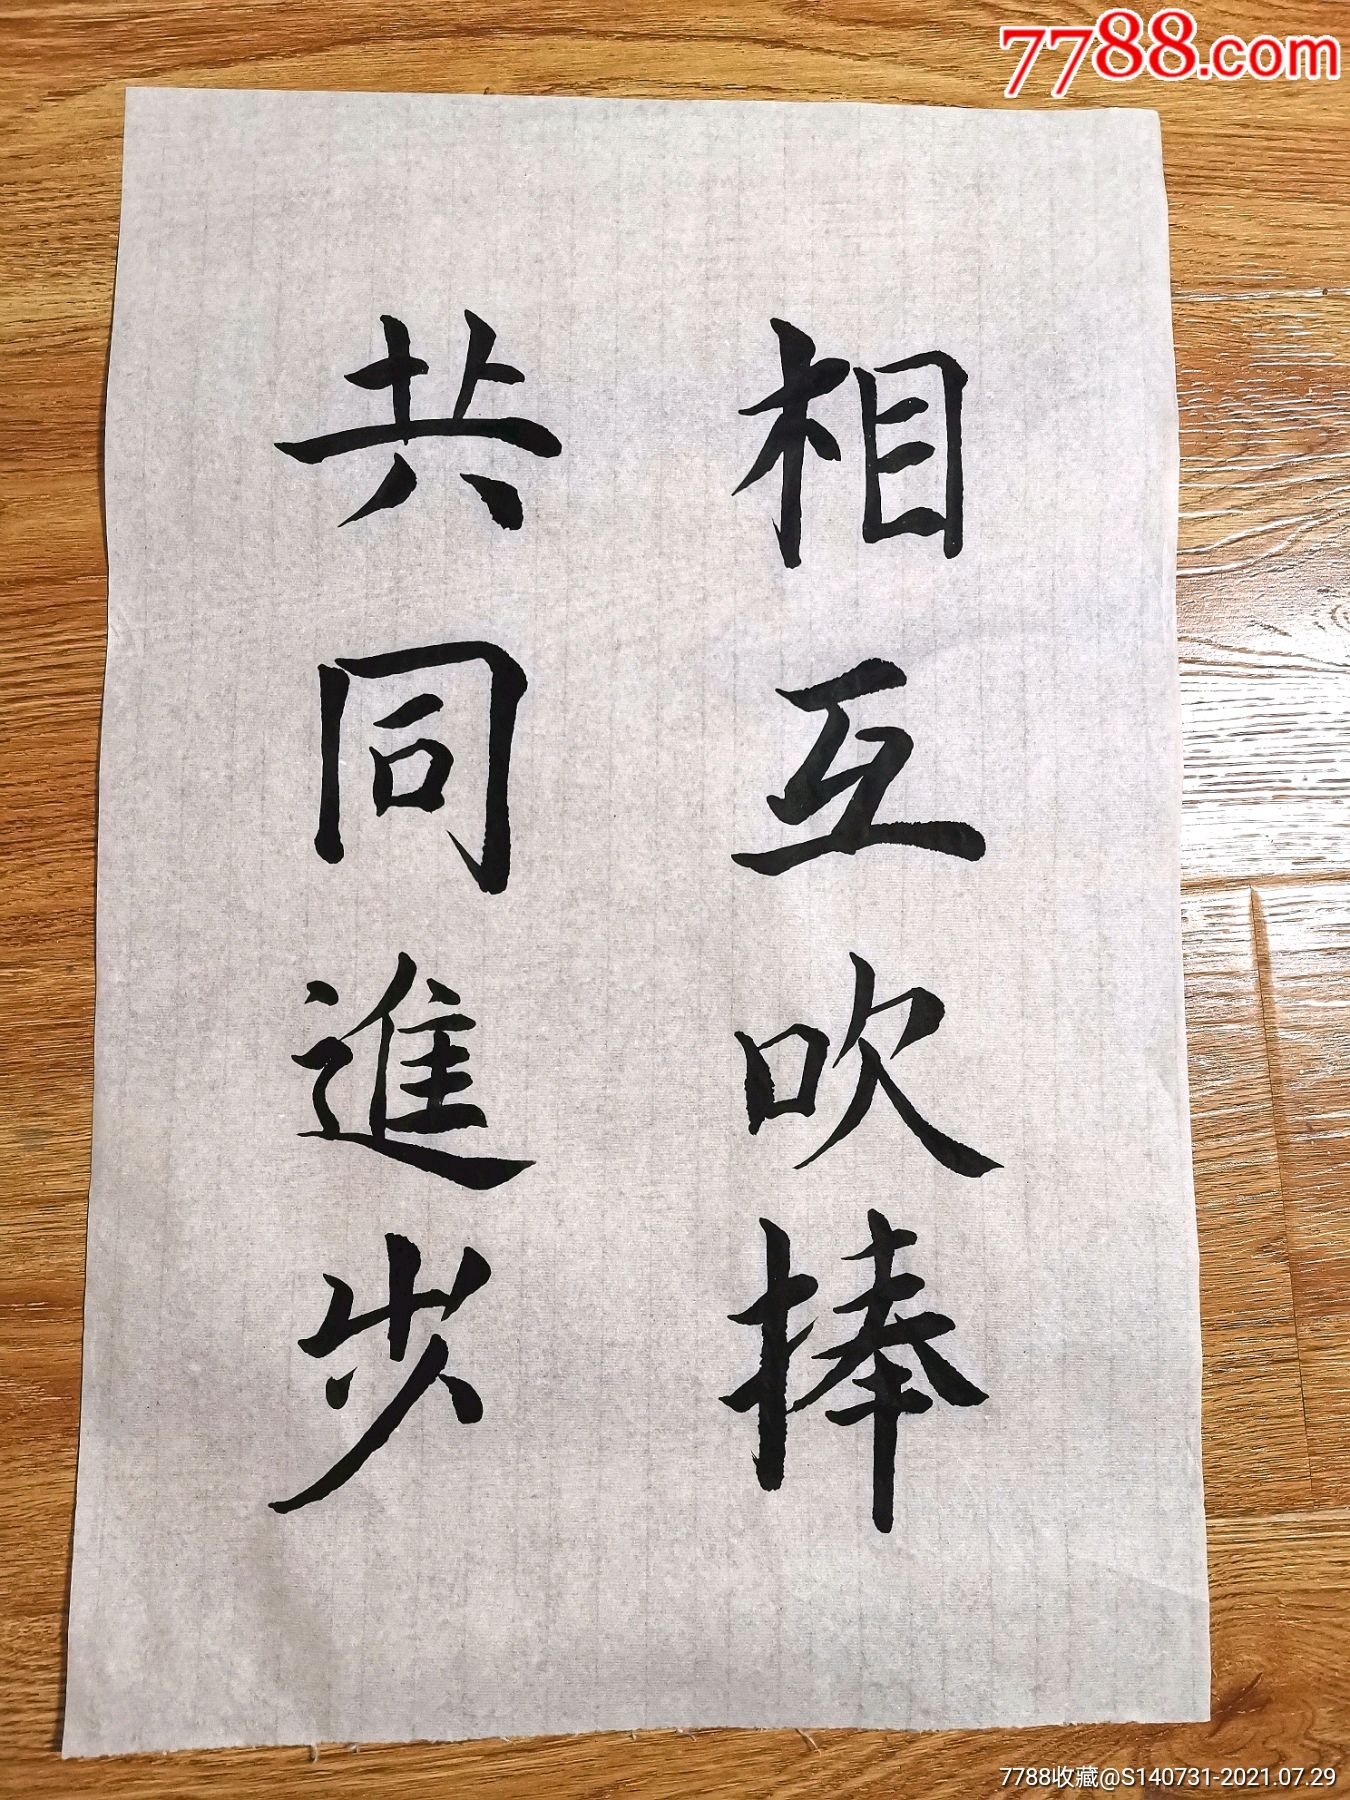 7788.com
相互吹捧
共同進步
7788收藏@S140731-2021.07.29